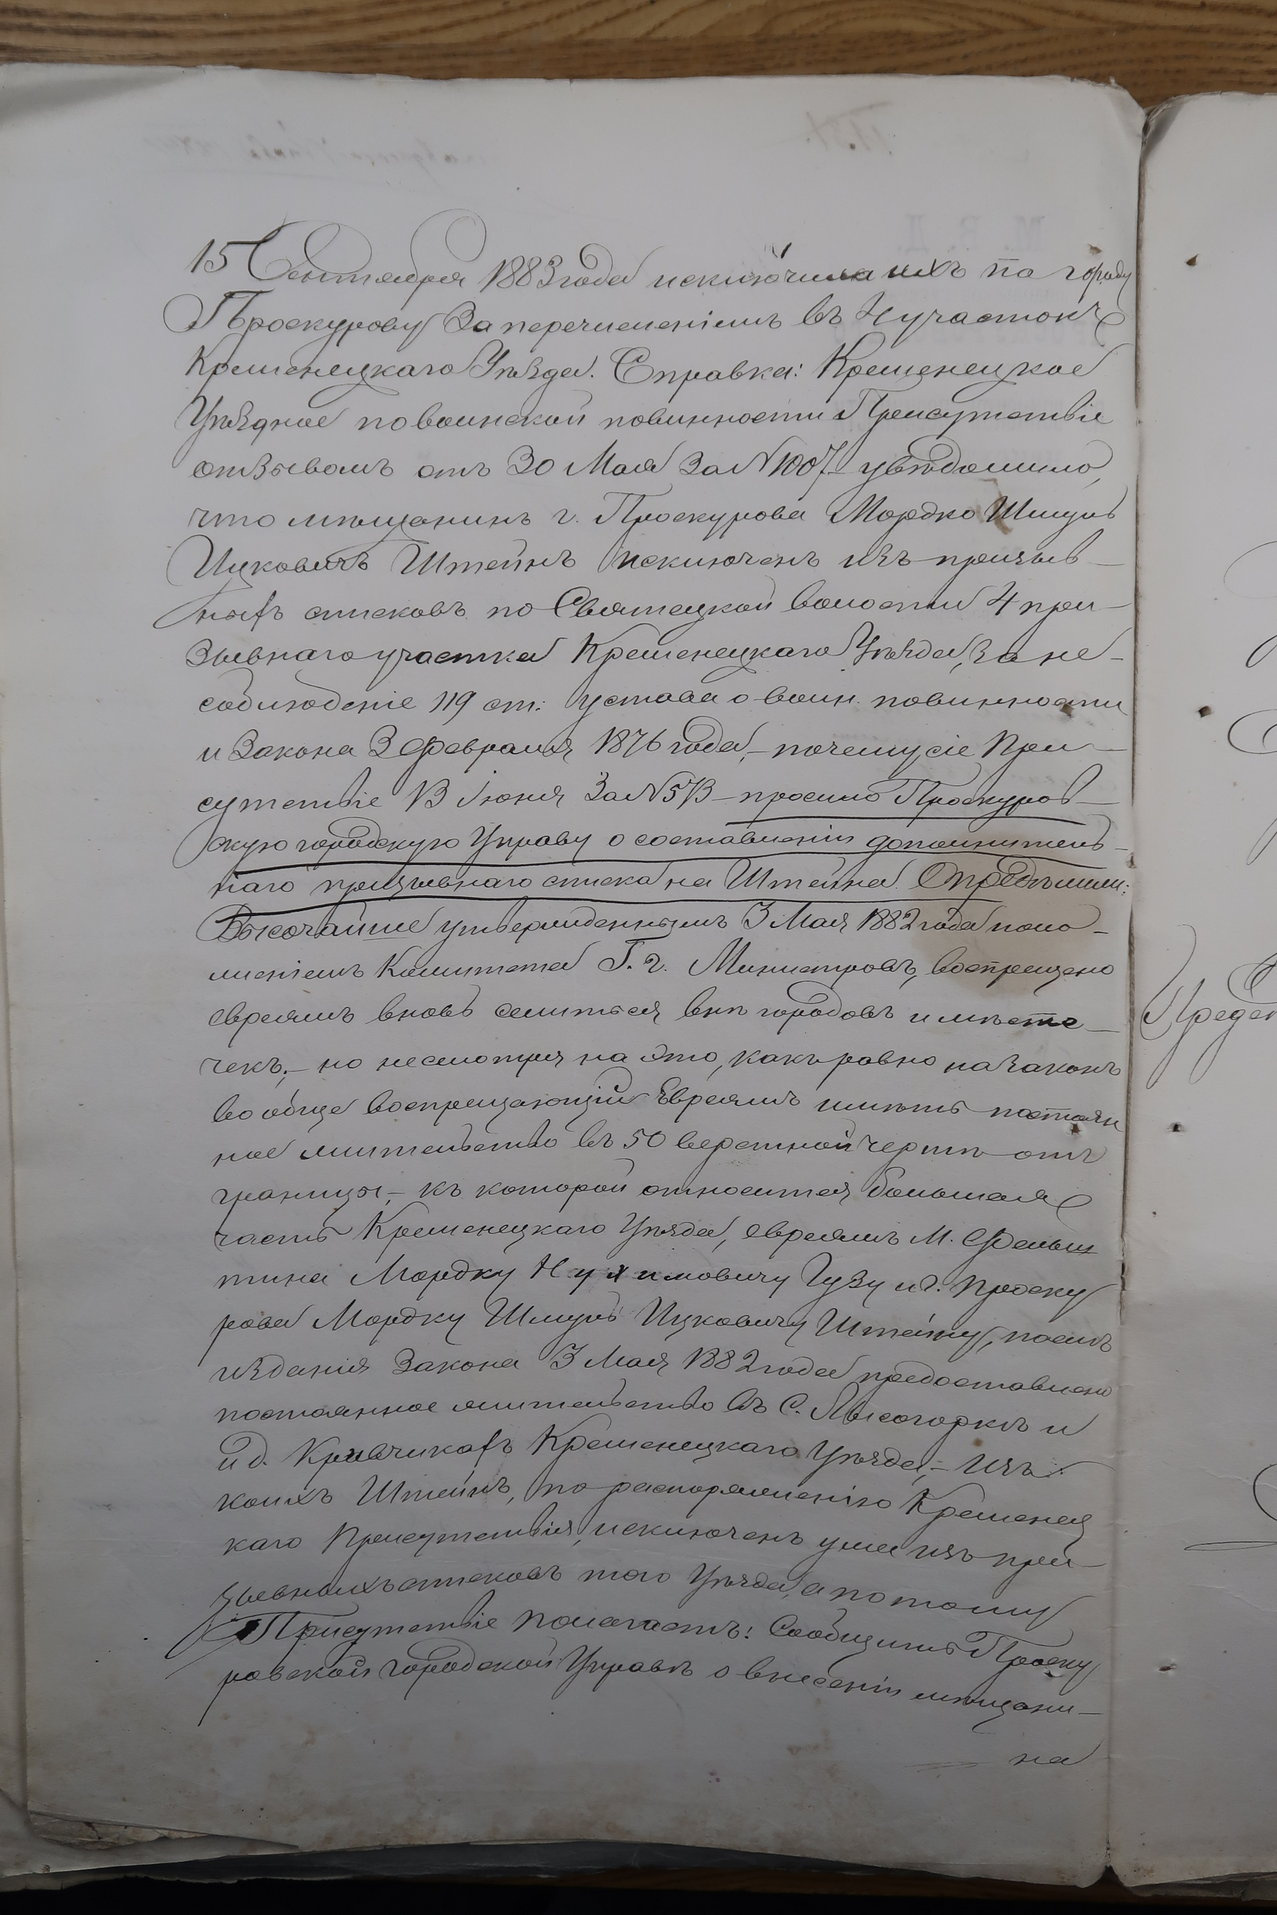 15 Сентября 1883 года исключила ихъ по городу
Проскурову за перечисленіемъ въ 4 участокъ
Кременецкаго Уѣзда. Справка: Кременецкое
Уѣздное по воинской повинности Присутствіе
отзывомъ отъ 30 Мая за N 1007 увѣдомило,
что мѣщанинъ г. Проскурова Мордко Шмуль
Ицковичъ Штейнъ исключенъ изъ призыв-
ныхъ списковъ по Святецкой волости 4 при-
зывнаго участка Кременецкаго Уѣзда, за не-
соблюденіе 119 ст: устава о воин. повинности
и Закона 3 Февраля 1876 года, - почему сіе При-
сутствіе 13 Іюня за N 573 - просило Проскуров-
скую городскую Управу о составленіи дополнитель-
наго призывнаго списка на Штейна. Опредѣлили:
Высочайше утвержденнымъ 3 Мая 1882 года поло-
женіемъ Комитета Г. г. Министровъ, воспрещено
евреямъ вновь селиться внѣ городовъ и мѣсте-
чекъ; - но несмотря на это, какъ равно на законъ
вообще воспрещающій Евреямъ имѣть постоян
ное жительство въ 50 верстной чертѣ отъ
границы, - къ которой относится большая
часть Кременецкаго Уѣзда, евреямъ М. Фельш
тина Мордку Нухимовичу Гузу и г. Проску
рова Мордку Шмулю Ицковичу Штейну, послѣ
изданія Закона 3 Мая 1882 года предоставлено
постоянное жительство въ С. Лысогоркѣ и
и д. Кривчикахъ Кременецкаго Уѣзда, - изъ
коихъ Штейнъ, по распоряженію Кременец
каго Присутствія, исключенъ уже изъ при-
зывныхъ списковъ того Уѣзда, а потому
Присутствіе полагаетъ: Сообщить Проску
ровской городской Управѣ о внесеніи мѣщани-
на